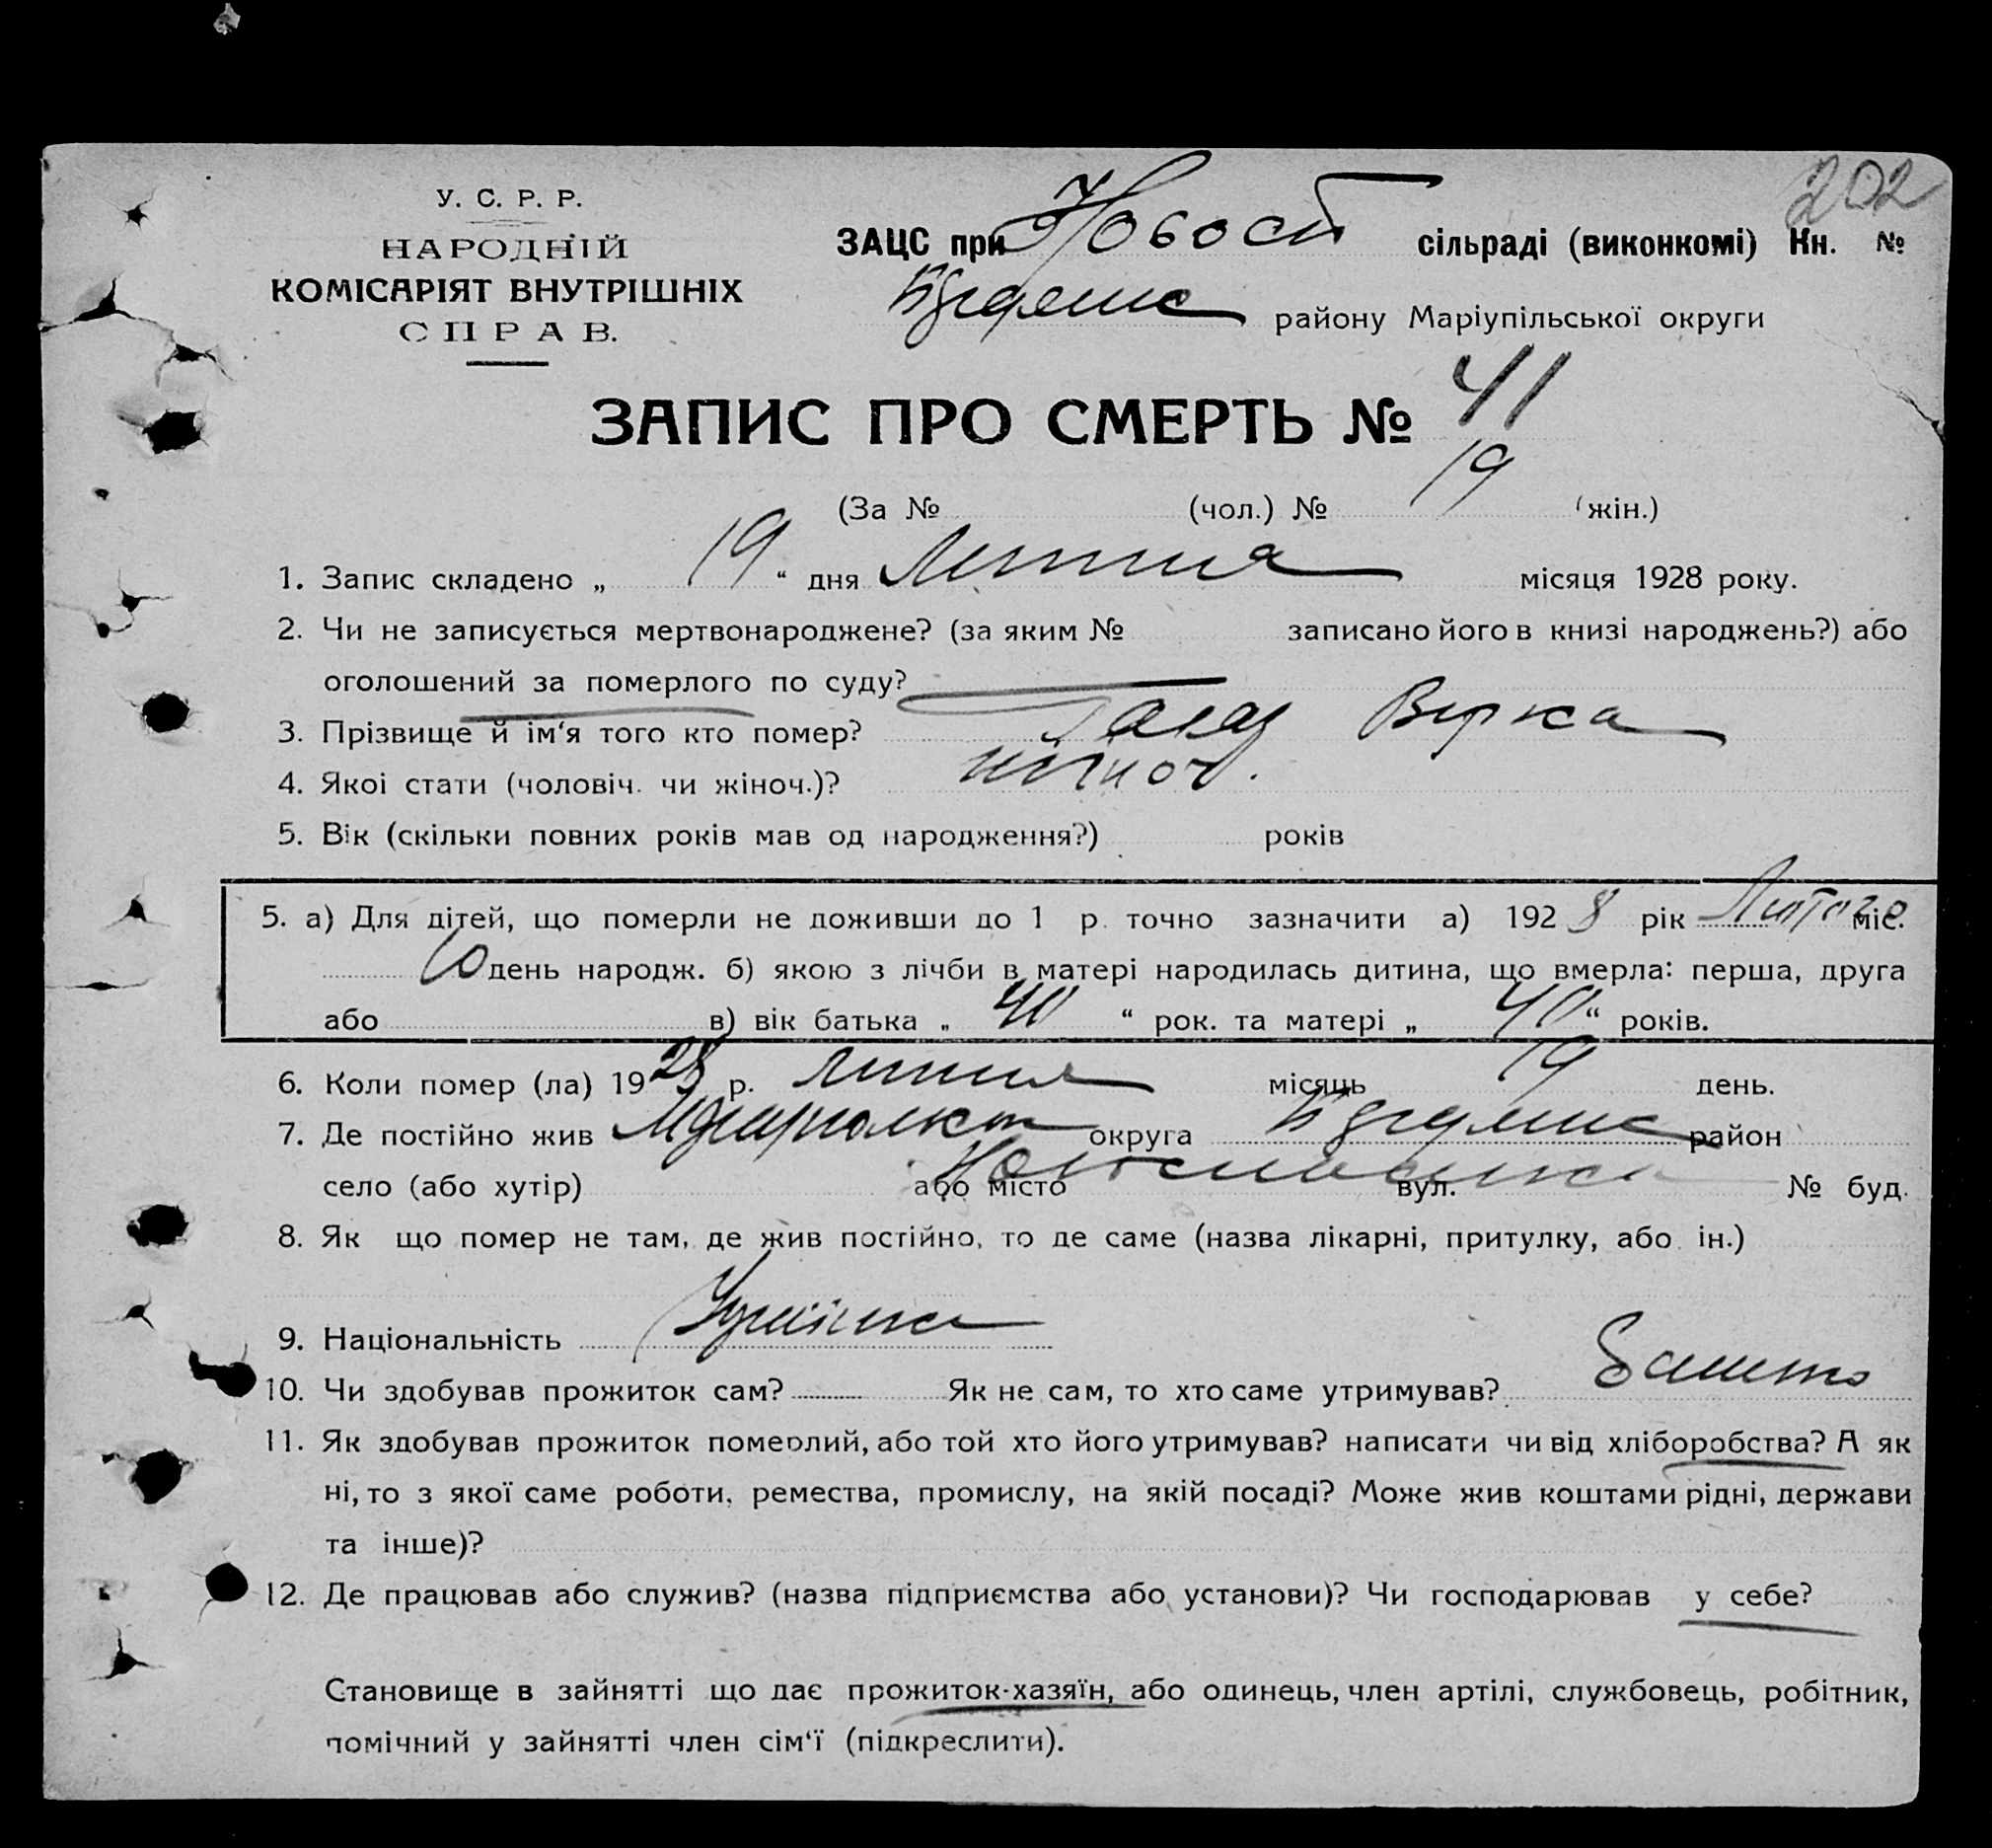 202
У. С. Р. Р.
НАРОДНІЙ
КОМІСАРІЯТ ВНУТРІШНІХ
СПРАВ.
ЗАЦС при Новосп сільраді (виконкомі) Кн. №
району Маріупільської округи
ЗАПИС ПРО СМЕРТЬ № 41
(За № (чол.) № 19 (жін.)
1. Запис складено „ 19 “ дня Липня місяця 1928 року.
2. Чи не записується мертвонароджене? (за яким № записано його в книзі народжень?) або
оголошений за померлого по суду?
3. Прізвище й ім‘я того кто помер? Вірка
4. Якоі стати (чоловіч. чи жіноч.)? жіноч.
5. Вік (скільки повних років мав од народження?) років
5. а) Для дітей, що померли не доживши до 1 р. точно зазначити а) 1928 рік Лютого міс.
10 день народж. б) якою з лічби в матері народилась дитина, що вмерла: перша, друга
або в) вік батька „ 40 “ рок. та матері „ 40 “ років.
6. Коли помер (ла) 1928 р. липня місяць 19 день.
7. Де постійно жив округа район
село (або хутір) або місто вул. № буд.
8. Як що помер не там, де жив постійно, то де саме (назва лікарні, притулку, або ін.)
9. Національність
10. Чи здобував прожиток сам? Як не сам, то хто саме утримував? батько
11. Як здобував прожиток померлий, або той хто його утримував? написати чи від хліборобства? А як
ні, то з якої саме роботи, ремества, промислу, на якій посаді? Може жив коштами рідні, держави
та інше)?
12. Де працював або служив? (назва підприємства або установи)? Чи господарював у себе?
Становище в зайнятті що дає прожиток-хазяїн, або одинець, член артілі, службовець, робітник,
помічний у зайнятті член сім‘ї (підкреслити).